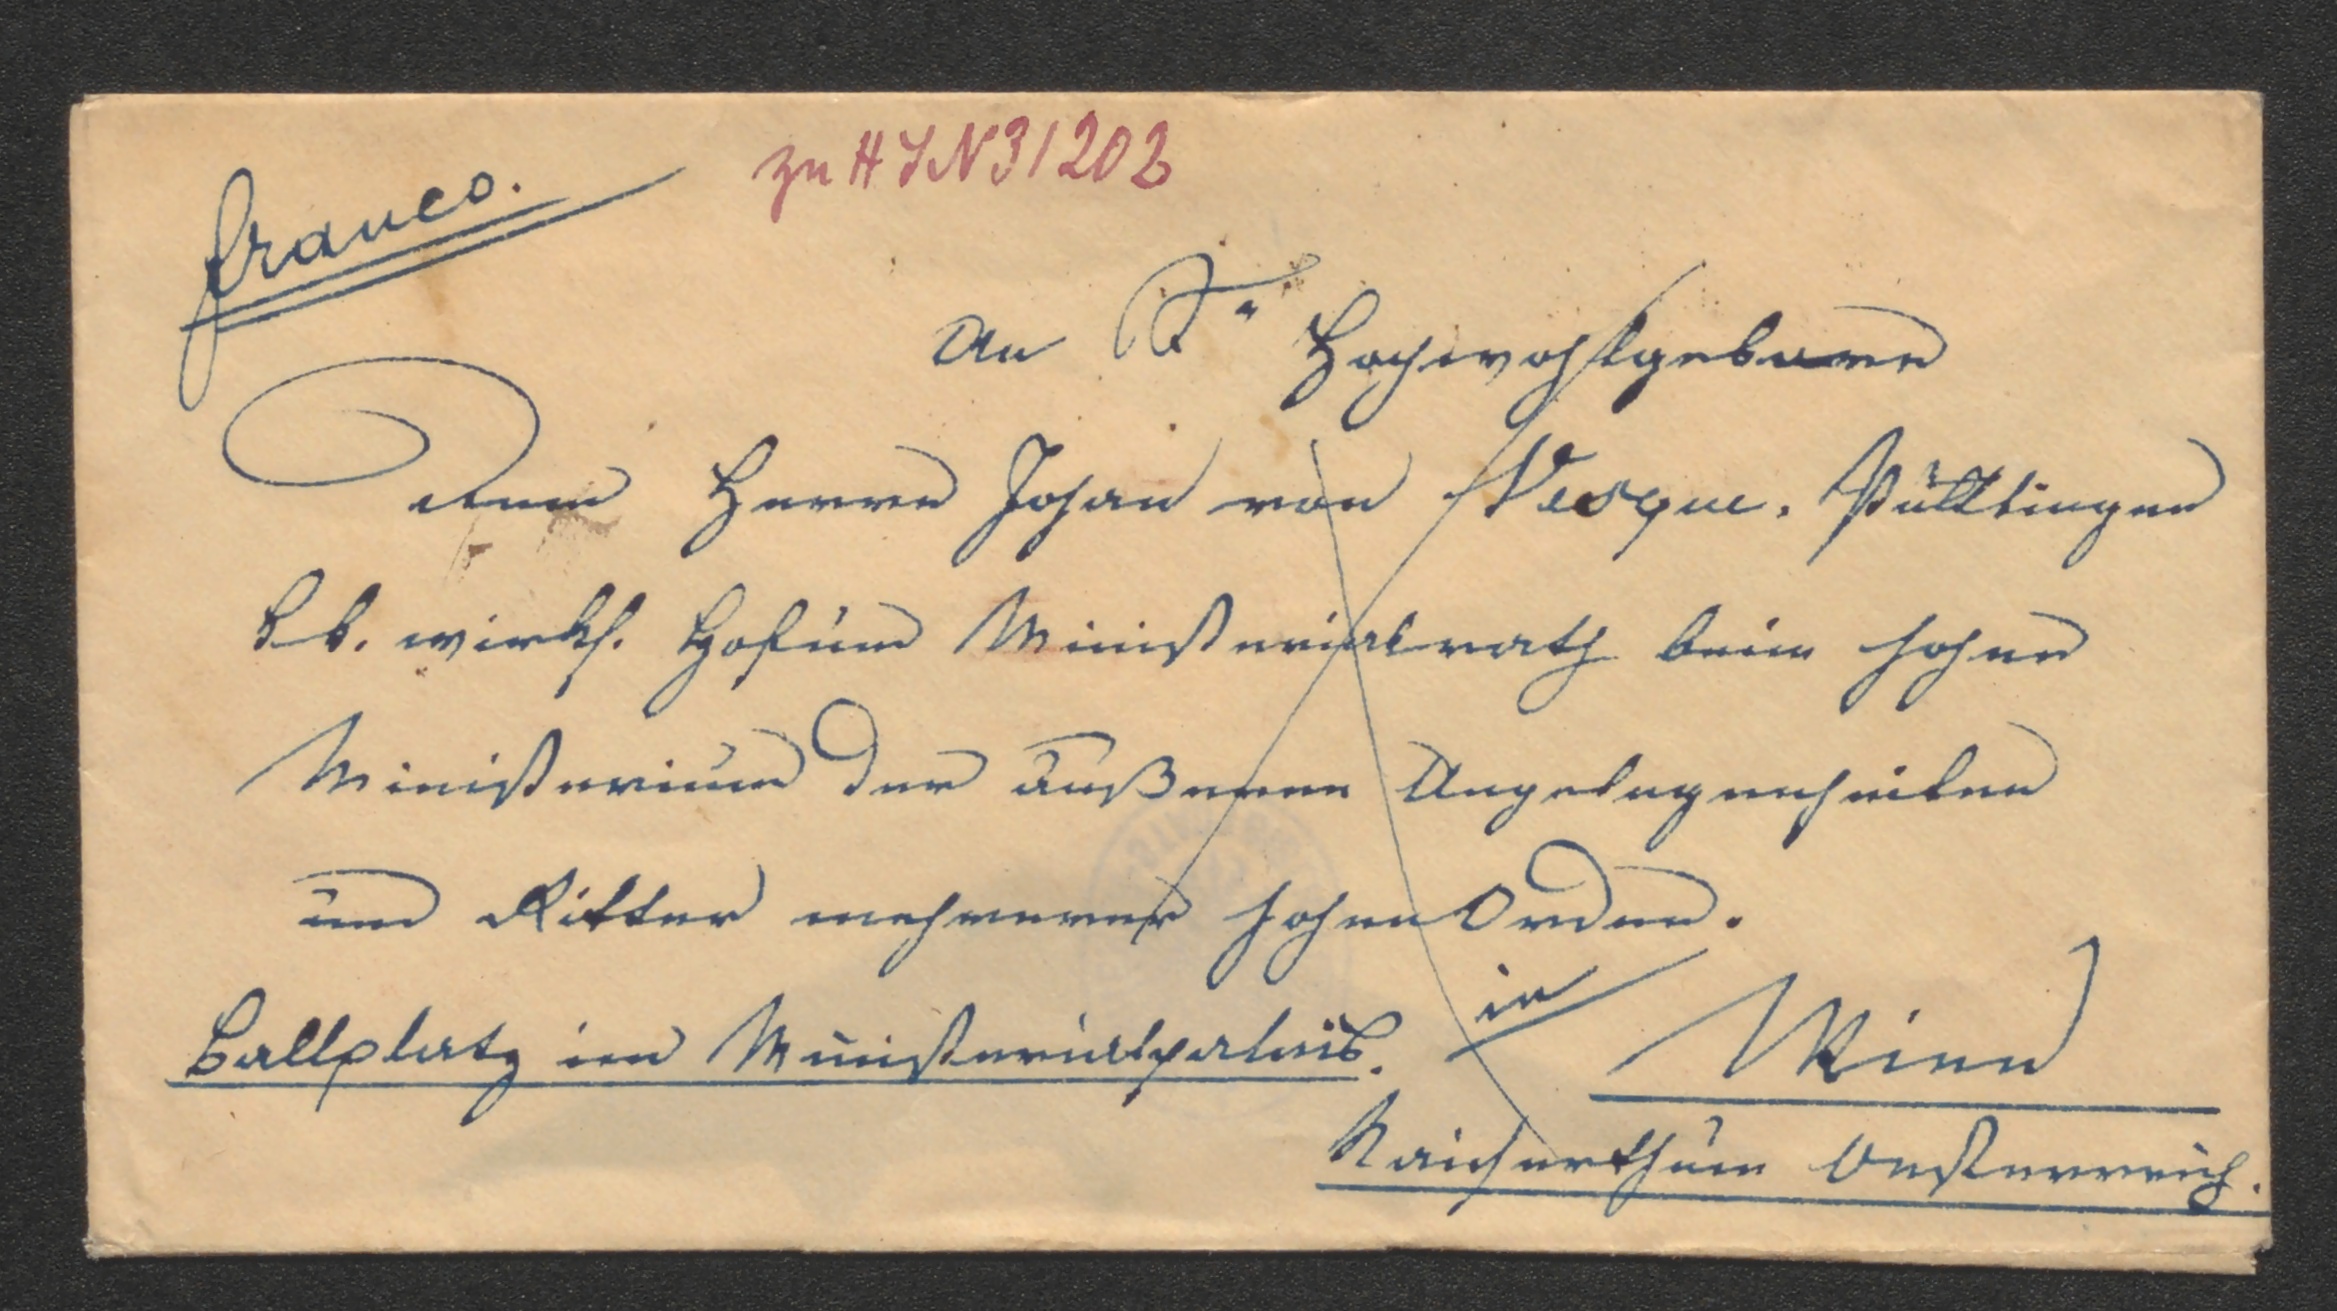 franco.
zu H I N 31202
An Sr Hochwohlgeboren
dem Herrn Johan von Vesque. Püttlingen
k k. wirkl. Hof und Ministerialrath beim hohen
Ministerium der äußeren Angelegenheiten
und Ritter mehrerer hohen Orden.
Ballplatz im Ministerialpalais.
in Wien
Kaiserthum Oesterreich.